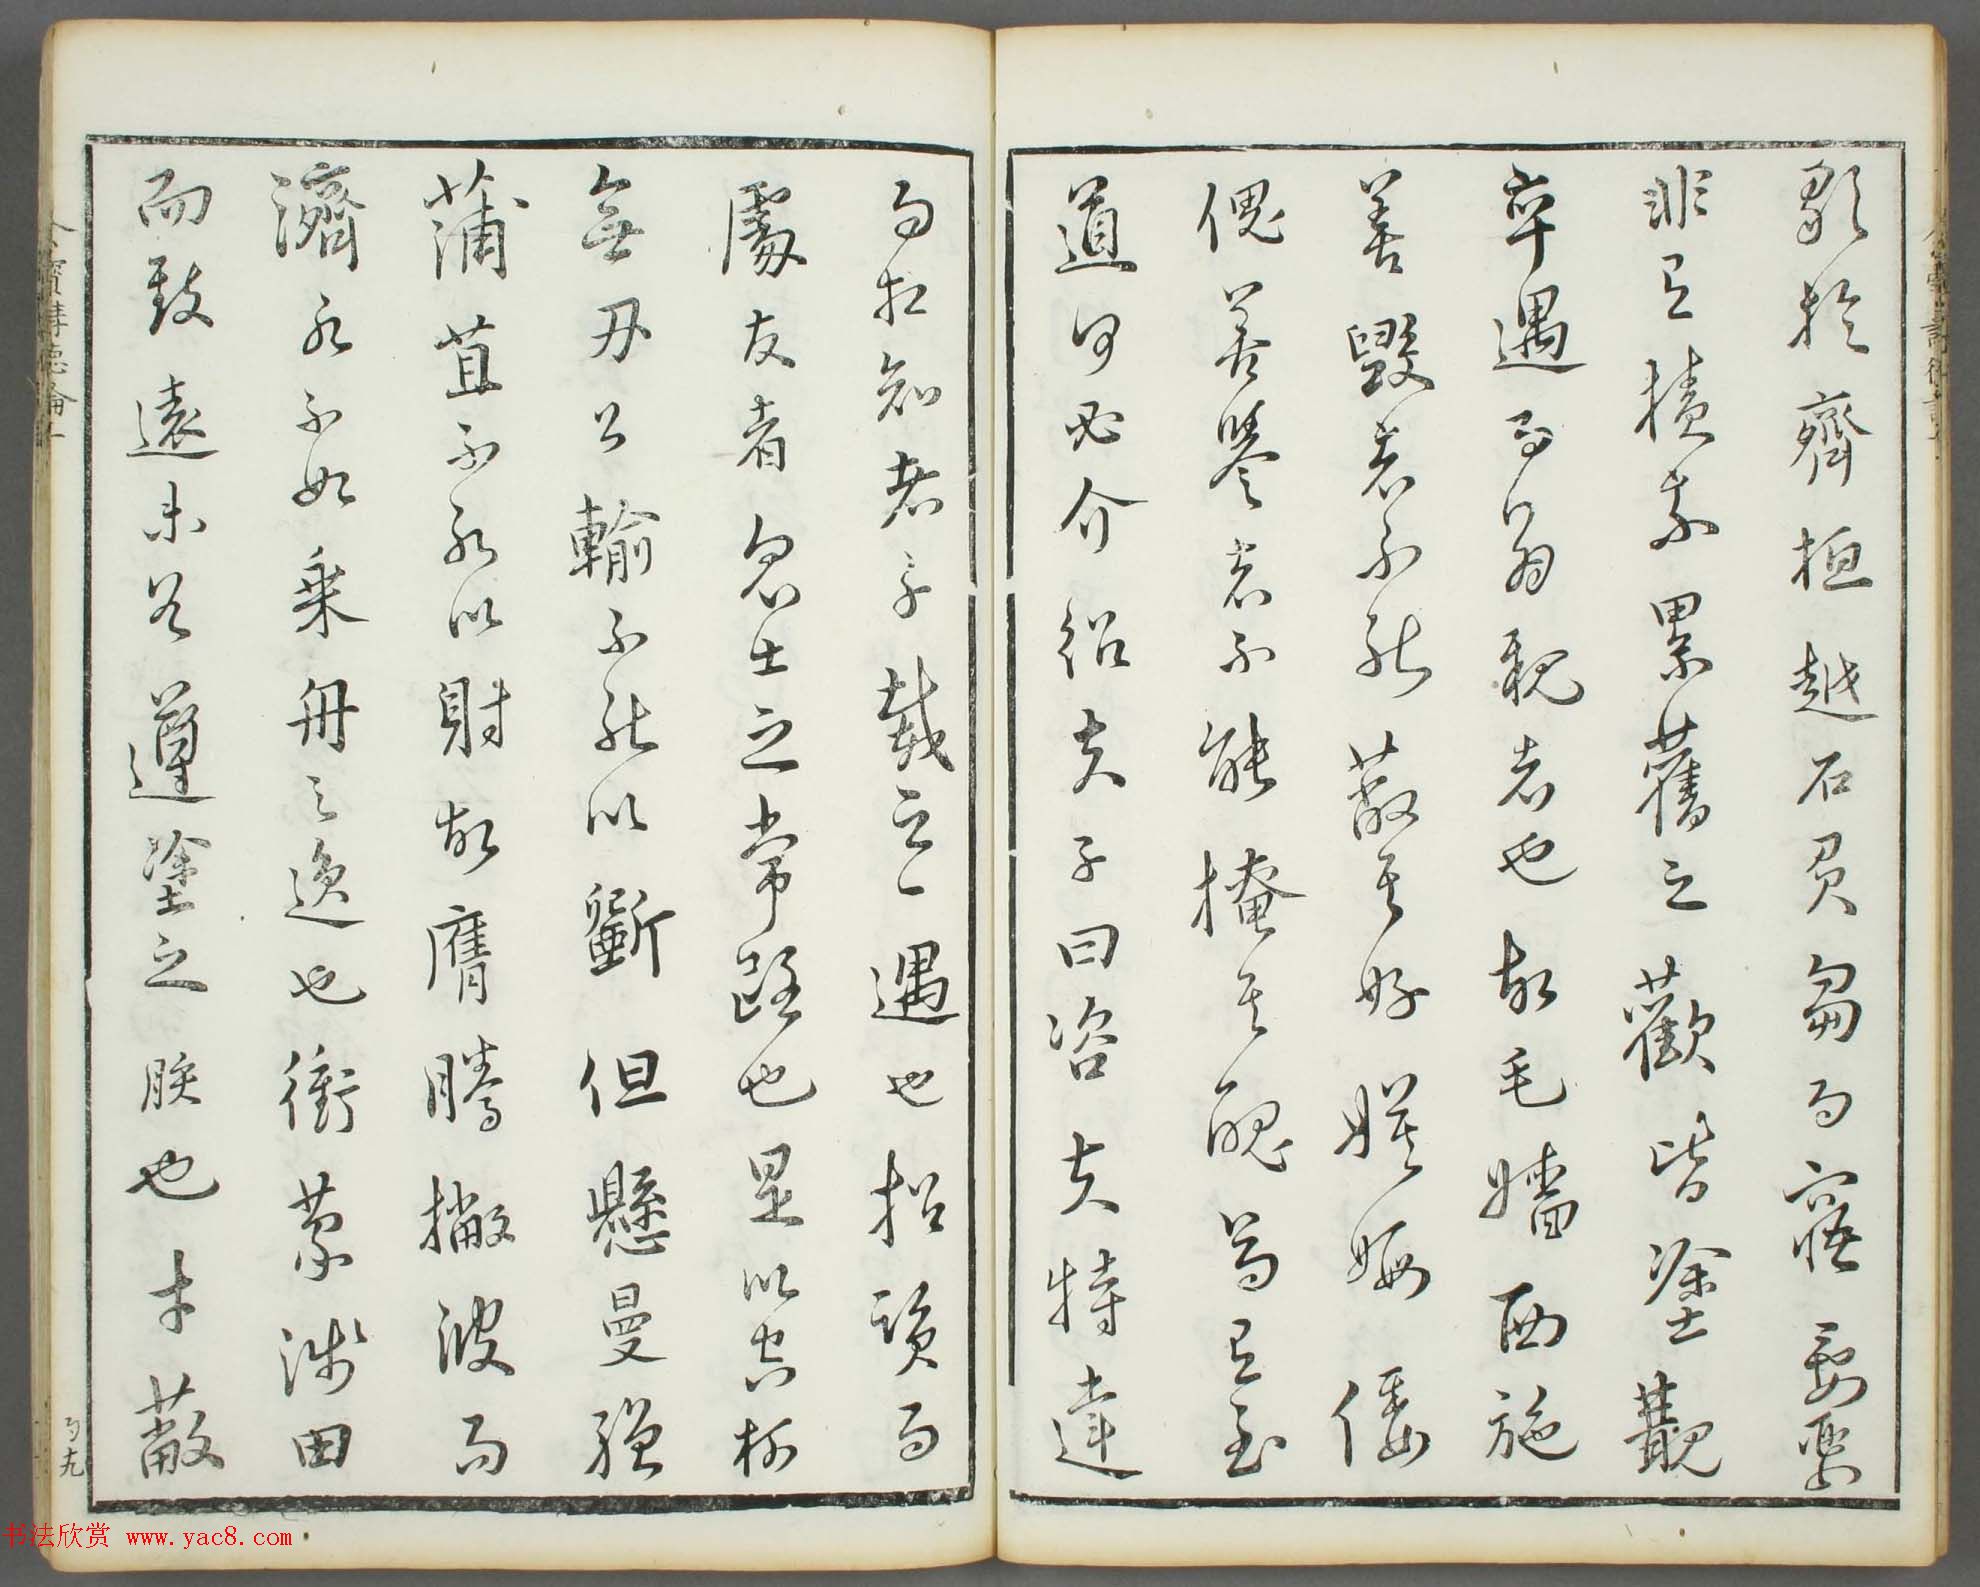 歌於齊桓越石負芻而寤晏嬰
非有積素累舊之歡皆塗覯
卒遇而為親者也故毛嬙西施
善毀者不能蔽其好嫫姆倭
傀善譽者不能掩其醜苟有至
道何必介紹夫子曰咨夫特達
而相知者千載之一遇也招賢而
處友者眾士之常路也是以空柯
無刃公輸不能以斲但懸曼矰
蒲苴不能以射故膺騰撇波而
濟水不如乘舟之逸也衝蒙涉田
而致遠未若遵塗之疾也才蔽
书法欣赏 www.yac8.com